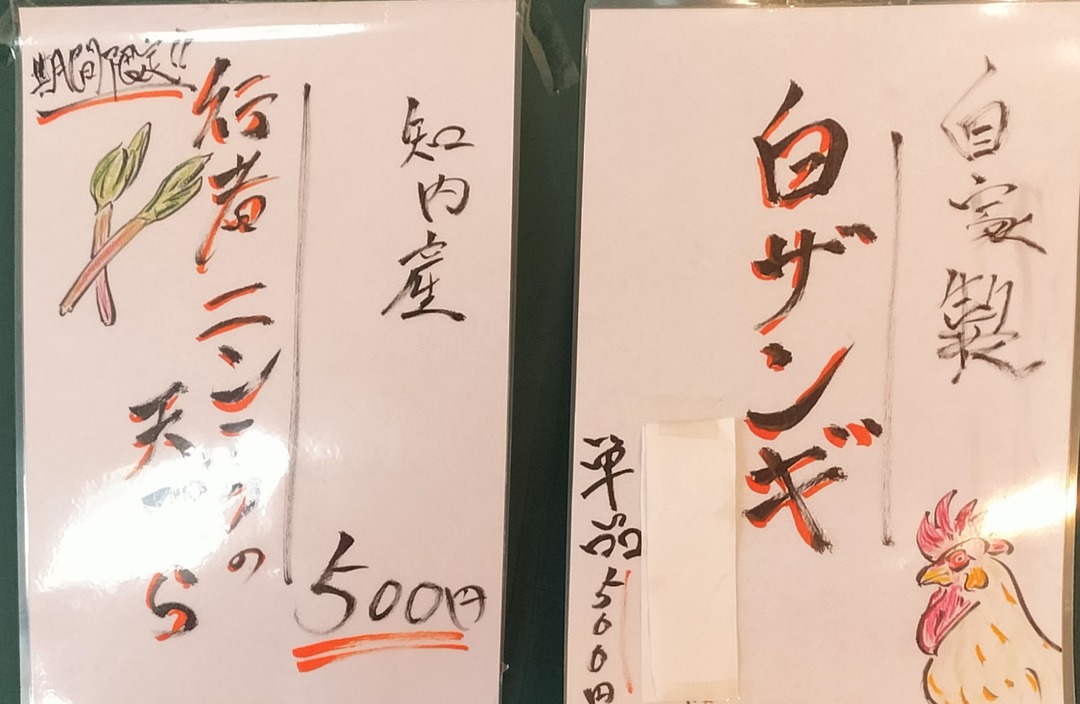 期間限定!!
知内産
行者ニンニクの
天ぷら
500円
自家製
白ザンギ
単品500円